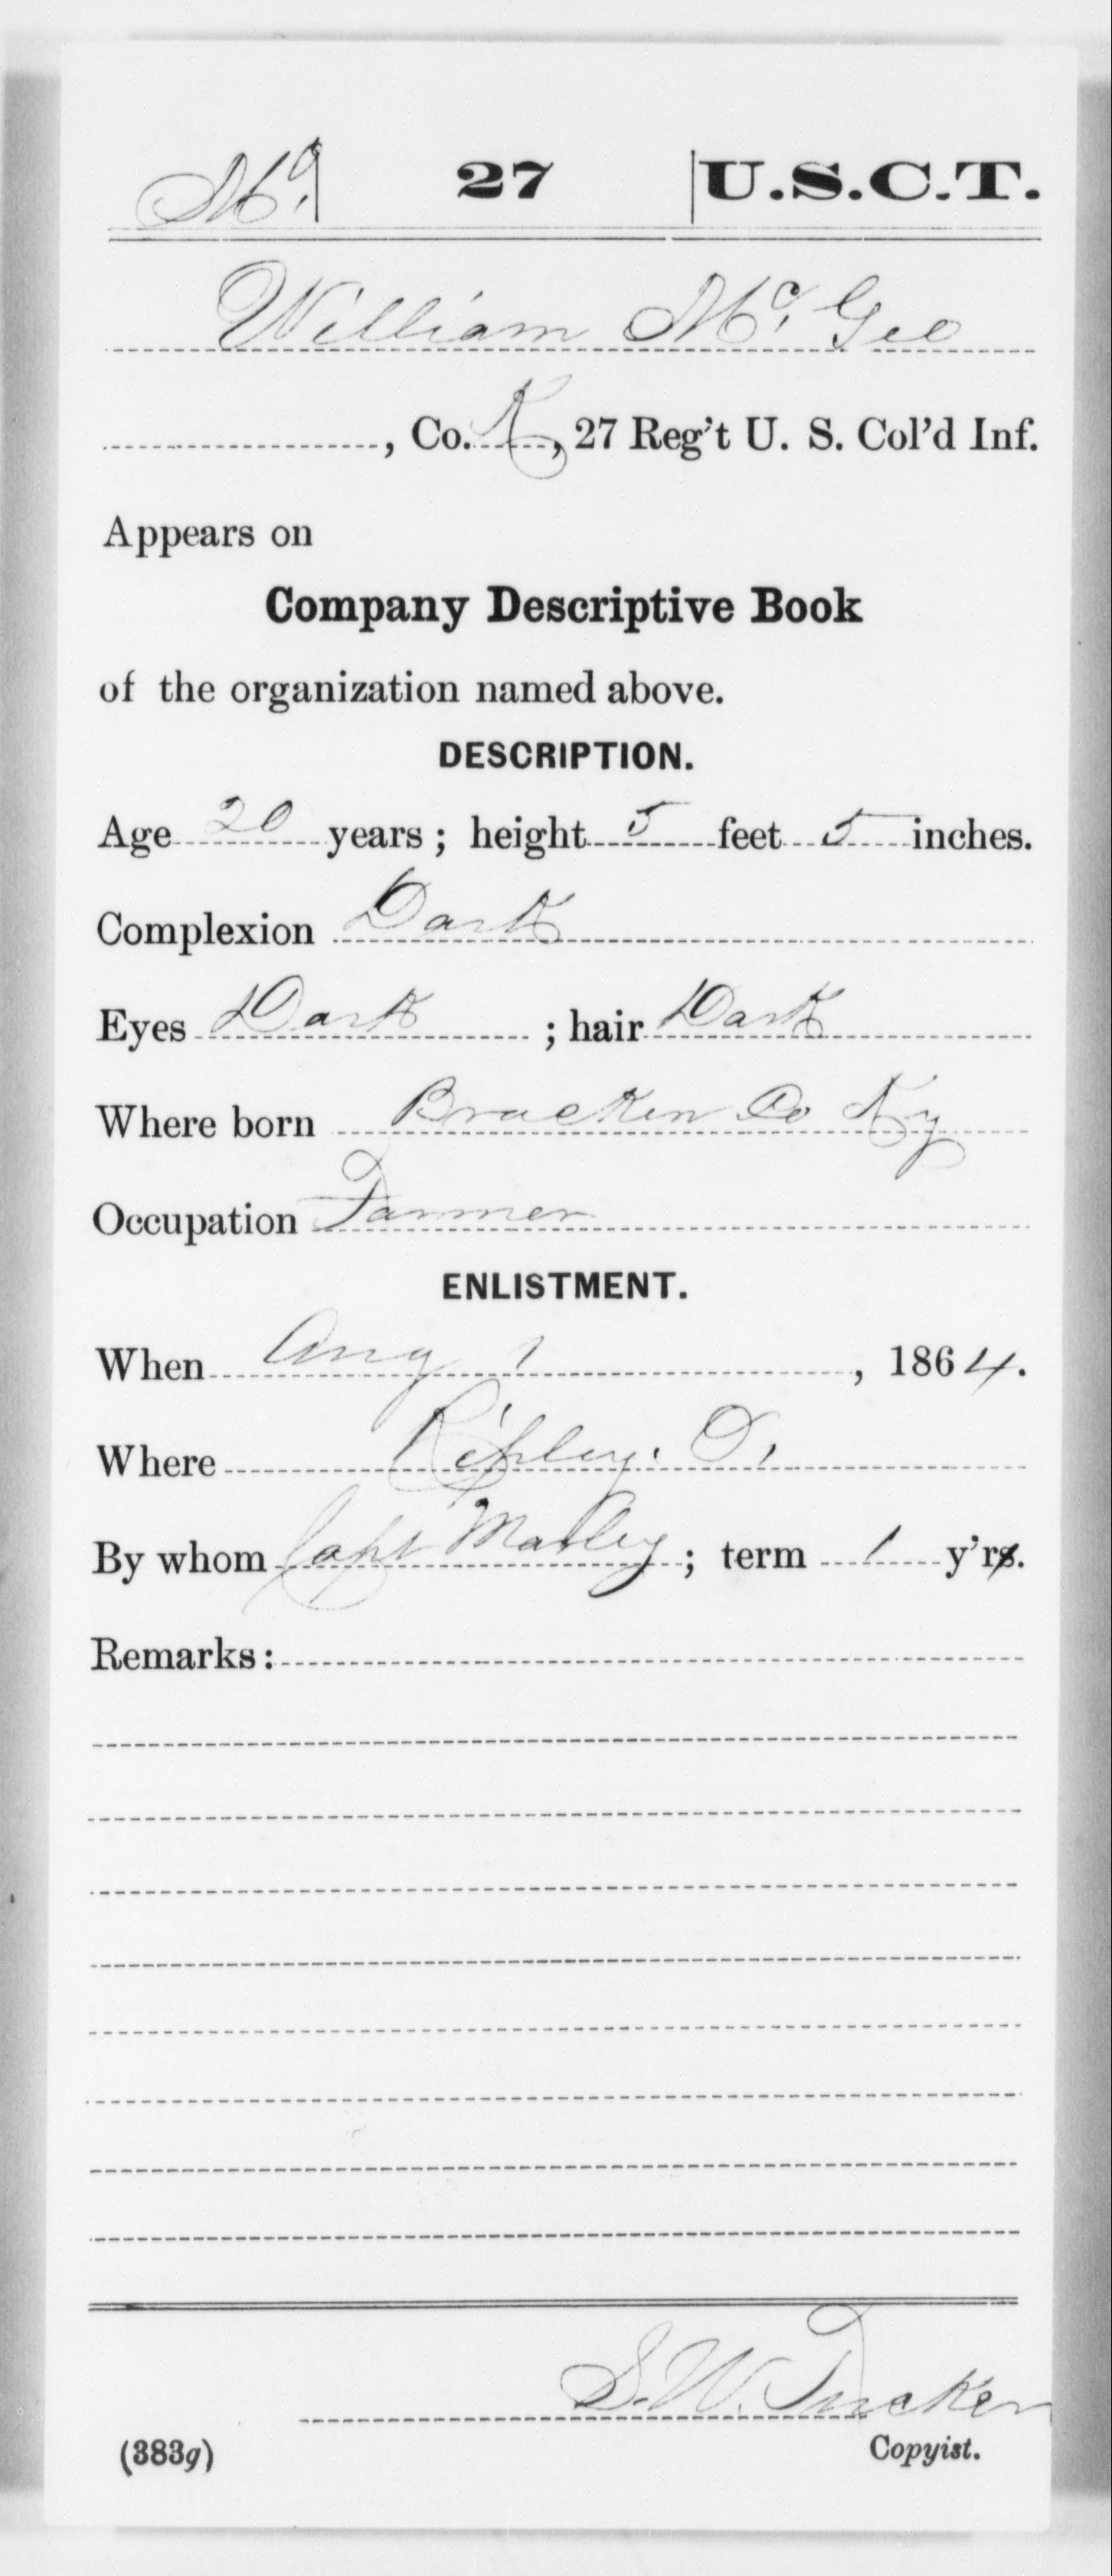 Mc. | 27 | U.S.C.T.
William Mc. Gee
, Co. K, 27 Reg't U. S. Col'd Inf.
Appears on
Company Descriptive Book
of the organization named above.
DESCRIPTION.
Age 20 years; height 5 feet 5 inches.
Complexion Dark
Eyes Dark ; hair Dark
Where born Bracken Co Ky
Occupation Farmer
ENLISTMENT.
When Aug 1, 1864.
Where Ripley. O.
By whom Capt ; term 1 y'rs.
Remarks:
S. W. Tucker
(383g) Copyist.